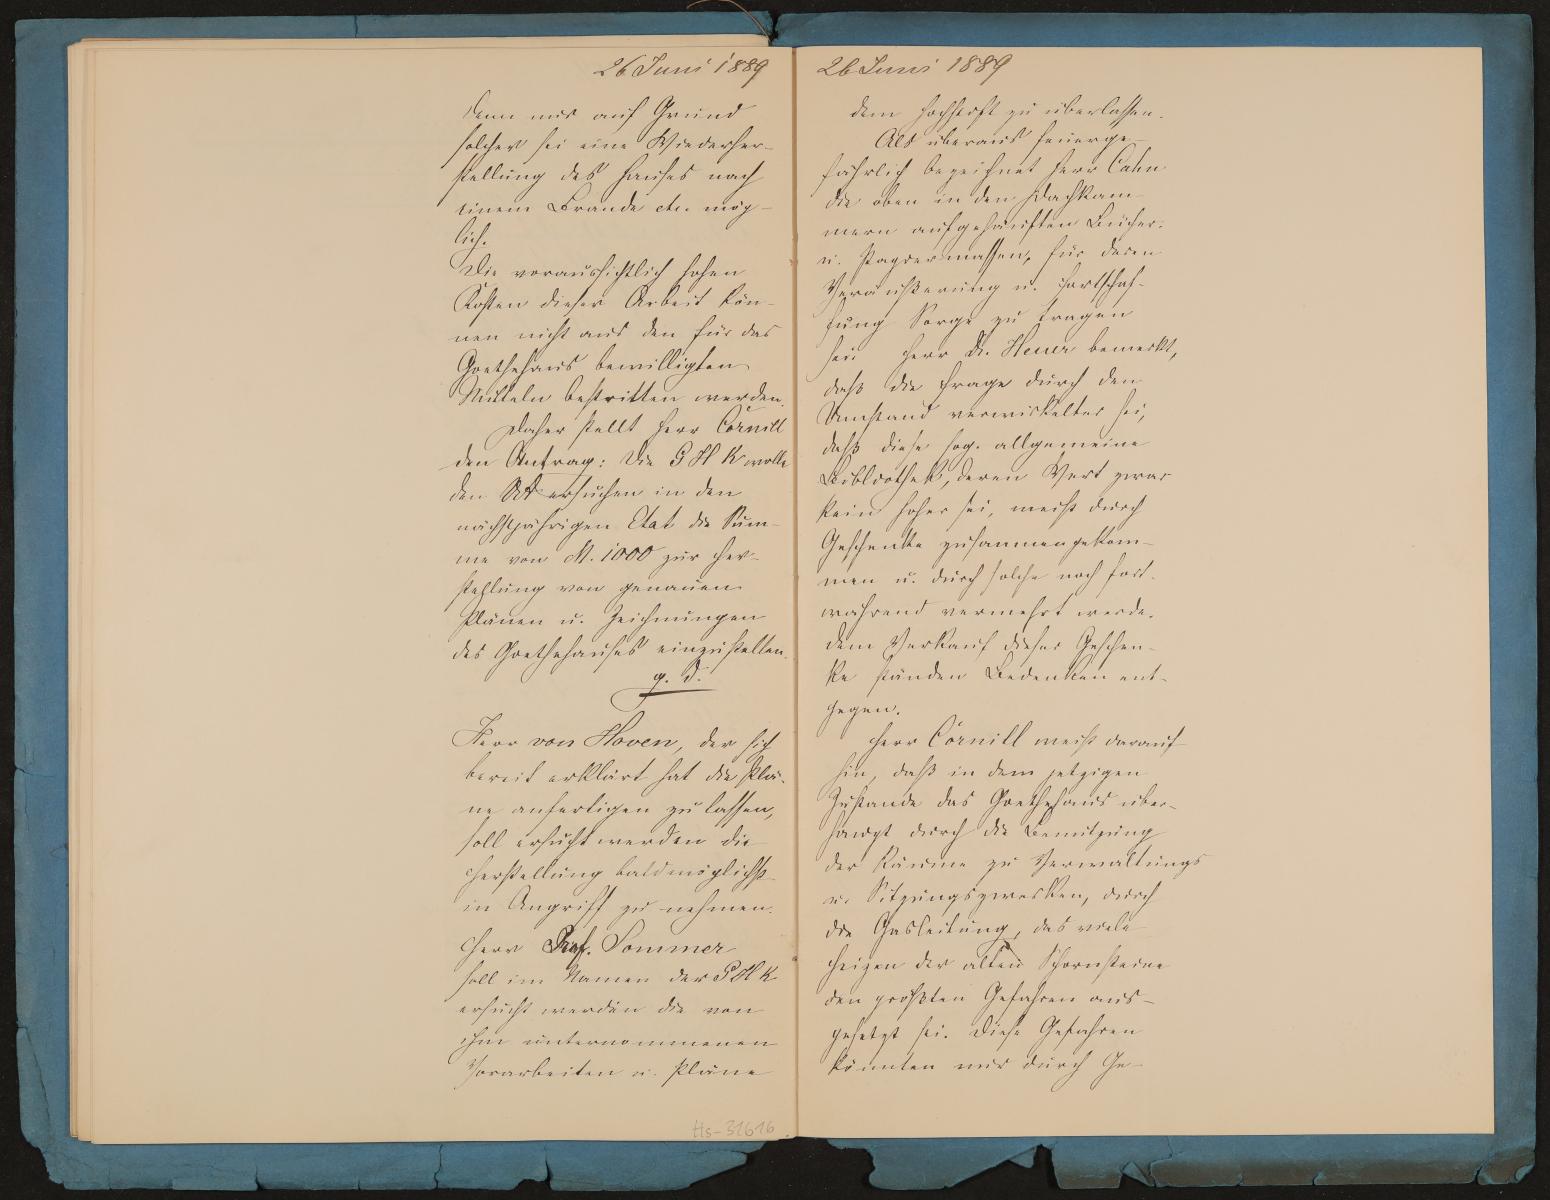 26 Juni 1889
denn nur auf Grund
solcher sei eine Wiederher-
stellung des Hauses nach
einem Brande etc. mög-
lich.
Die voraussichtlich hohen
Kosten dieser Arbeit kön-
nen nicht aus den für das
Goethehaus bewilligten
Mitteln bestritten werden.
Daher stellt Herr Cornill
den Antrag: Die G H K wolle
den VA ersuchen in den
nächstjährigen Etat die Sum-
me von M. 1000 zur Her-
stellung von genauen
Plänen u. Zeichnungen
des Goethehauses einzustellen.
g. d.
Herr von Hoven, der sich
bereit erklärt hat die Plä-
ne anfertigen zu lassen,
soll ersucht werden die
Herstellung baldmöglichst
in Angriff zu nehmen.
Herr Prof. Sommer
soll im Namen der G H K
ersucht werden die von
ihm unternommenen
Vorarbeiten u. Pläne
Hs-31616
26 Juni 1889
dem Hochstift zu überlassen.
Als überaus feuerge-
fährlich bezeichnet Herr Cahn
die oben in den Dachkam-
mern aufgehäuften Bücher-
u. Papiermassen, für deren
Veräußerung u. Fortschaf-
fung Sorge zu tragen
sei. Herr Dr. Heuer bemerkt,
daß die Frage durch den
Umstand verwickelter sei,
daß diese sog. allgemeine
Bibliothek, deren Wert zwar
kein hoher sei, meist durch
Geschenke zusammengekom-
men u. durch solche noch fort-
während vermehrt werde.
Dem Verkauf dieser Geschen-
ke ständen Bedenken ent-
gegen.
Herr Cornill weist darauf
hin, daß in dem jetzigen
Zustande das Goethehaus über-
haupt durch die Benutzung
der Räume zu Verwaltungs
u. Sitzungszwecken, durch
die Gasleitung, das viele
Heizen der alten Schornsteine
den größten Gefahren aus-
gesetzt sei. Diese Gefahren
könnten nur durch Ge-